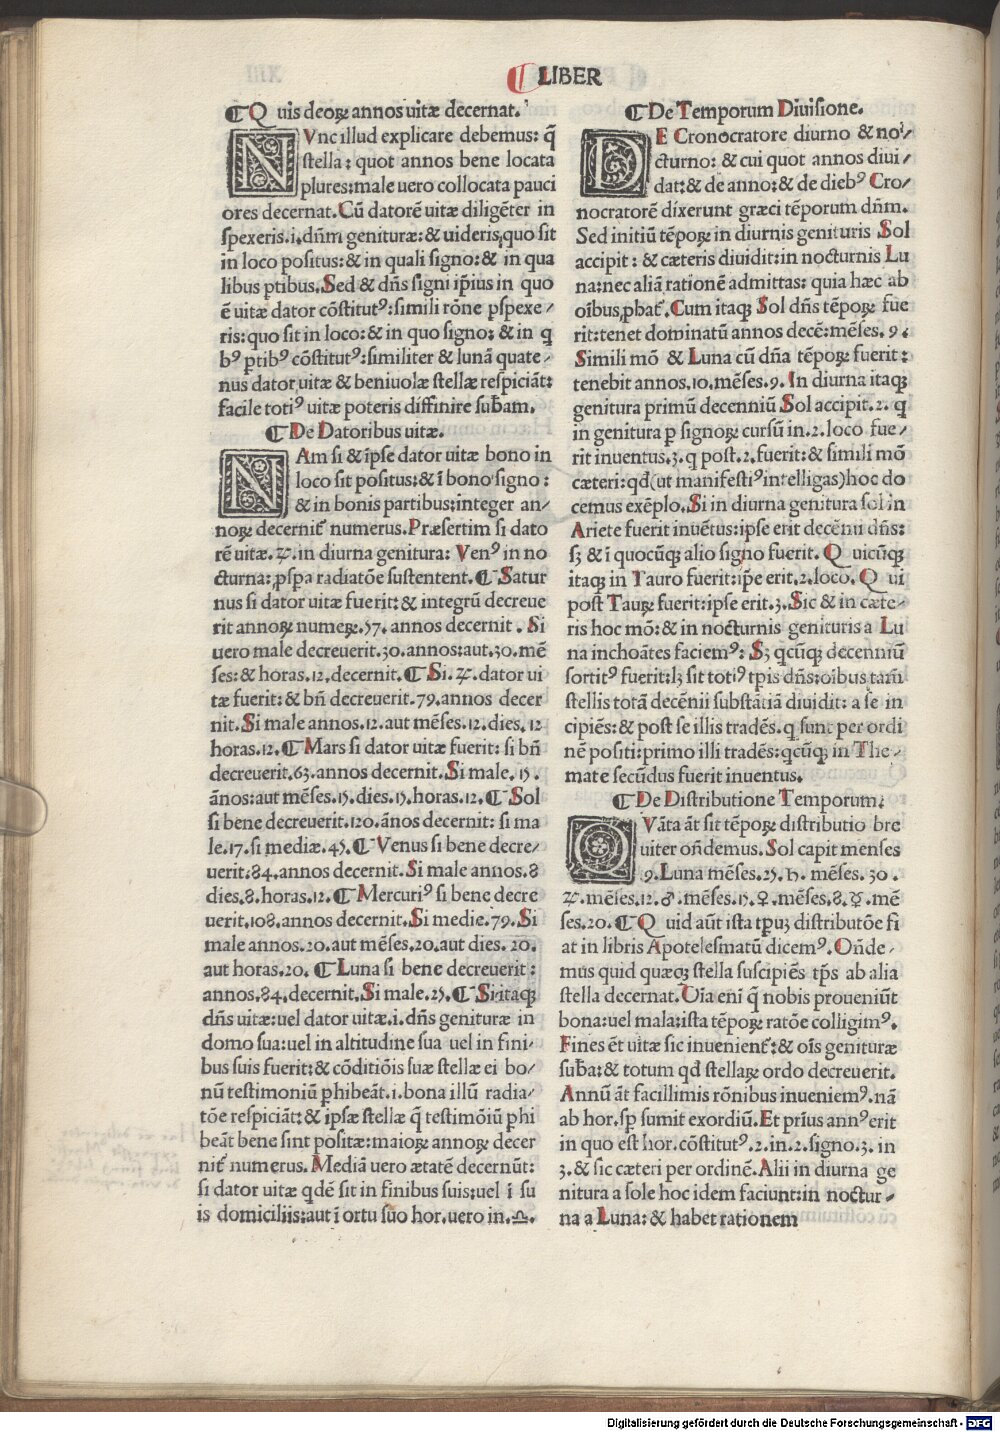 ¶ LIBER
¶ Quis deoꝝ annos uitæ decernat.
NVnc illud explicare debemus: q̃
stella: quot annos bene locata
plures: male uero collocata pauci
ores decernat. Cũ datorẽ uitæ diligẽter in
spexeris .i. dñm genituræ: & uideris, quo sit
in loco positus: & in quali signo: & in qua
libus ptibus. Sed & dñs signi ip̃ius in quo
ẽ uitæ dator cõstitutꝰ: simili rõne pspexe/
ris: quo sit in loco: & in quo signo: & in q
bꝰ ptibꝰ cõstitutꝰ: similiter & lunã quate/
nus dator uitæ & beniuolæ stellæ respiciãt:
facile totiꝰ uitæ poteris diffinire sub̃am.
¶ De Datoribus uitæ.
NAm si & ip̃se dator uitæ bono in
loco sit positus: & ĩ bono signo:
& in bonis partibus: integer an/
noꝝ decernit̃ numerus. Præsertim si dato
rẽ uitæ .♃. in diurna genitura: Venꝰ in no
cturna: pspa radiatõe sustentent. ¶ Satur
nus si dator uitæ fuerit: & integrũ decreue
rit annoꝝ numeꝝ .57. annos decernit. Si
uero male decreuerit .30. annos: aut .30. mẽ
ses: & horas .12. decernit. ¶ Si .♃. dator ui
tæ fuerit: & bñ decreuerit .79. annos decer
nit. Si male annos .12. aut mẽses .12. dies .12
horas .12. ¶ Mars si dator uitæ fuerit: si bñ
decreuerit .63. annos decernit. Si male .15.
ãnos: aut mẽses .15. dies .15. horas .12. ¶ Sol
si bene decreuerit .120. ãnos decernit: si ma
le .17. si mediæ .45. ¶ Venus si bene decre/
uerit: 84. annos decernit. Si male annos .8
dies .8. horas .12. ¶ Mercuriꝰ si bene decre
uerit .108. annos decernit. Si medie .79. Si
male annos .20. aut mẽses .20. aut dies .20.
aut horas .20. ¶ Luna si bene decreuerit:
annos .84. decernit. Si male .25. ¶ Si itaqꝫ
dñs uitæ: uel dator uitæ .i. dñs genituræ in
domo sua: uel in altitudine sua uel in fini/
bus suis fuerit: & cõditiõis suæ stellæ ei bo/
nũ testimoniũ phibeãt .i. bona illũ radia/
tõe respiciãt: & ipsæ stellæ q̃ testimõiũ phi
beãt bene sint positæ: maioꝝ annoꝝ decer
nit̃ numerus. Mediã uero ætatẽ decernũt:
si dator uitæ qdẽ sit in finibus suis: uel ĩ su
is domiciliis: aut ĩ ortu suo hor. uero in .♎.
¶ De Temporum Diuisione.
DE Cronocratore diurno & no/
cturno: & cui quot annos diui/
dat: & de anno: & de diebꝰ Cro/
nocratorẽ dixerunt græci tẽporum dñm.
Sed initiũ tẽpoꝝ in diurnis genituris Sol
accipit: & cæteris diuidit: in nocturnis Lu
na: nec aliã rationẽ admittas: quia hæc ab
oĩbus pbat̃. Cum itaqꝫ Sol dñs tẽpoꝝ fue
rit: tenet dominatũ annos decẽ: mẽses .9.
Simili mõ & Luna cũ dña tẽpoꝝ fuerit:
tenebit annos .10. mẽses .9. In diurna itaqꝫ
genitura primũ decenniũ Sol accipit .2. q
in genitura p signoꝝ cursũ in .2. loco fue/
rit inuentus .3. q post .2. fuerit: & simili mõ
cæteri: qđ (ut manifestiꝰ intelligas) hoc do
cemus exẽplo. Si in diurna genitura sol in
Ariete fuerit inuẽtus: ipse erit decẽnii dñs:
sꝫ & ĩ quocũqꝫ alio signo fuerit. Quicũqꝫ
itaqꝫ in Tauro fuerit: ip̃e erit .2. loco. Qui
post Tauꝝ fuerit: ipse erit .3. Sic & in cæte/
ris hoc mõ: & in nocturnis genituris a Lu
na inchoãtes faciemꝰ: Sꝫ qcũqꝫ decenniũ
sortitꝰ fuerit: lꝫ sit totiꝰ tp̃is dñs: oĩbus tam̃
stellis totã decẽnii substãtiã diuidit: a se in
cipiẽs: & post se illis tradẽs. q sunt per ordi
nẽ positi: primo illi tradẽs: qcũqꝫ in The/
mate secũdus fuerit inuentus.
¶ De Distributione Temporum.
QVãta ãt sit tẽpoꝝ distributio bre
uiter oñdemus. Sol capit menses
.9. Luna mẽses .25. ♄. mẽses .30.
♃. mẽses .12. ♂. mẽses .15. ♀. mẽses .8. ☿. mẽ
ses .20. ¶ Quid aũt ista tp̃uꝫ distributõe fi
at in libris Apotelesmatũ dicemꝰ. Oñde/
mus quid quæqꝫ stella suscipiẽs tp̃s ab alia
stella decernat. Oĩa eni q̃ nobis proueniũt
bona: uel mala: ista tẽpoꝝ ratõe colligimꝰ.
Fines ẽt uitæ sic inuenient̃: & oĩs genituræ
sub̃a: & totum qđ stellaꝝ ordo decreuerit.
Annũ ãt facillimis rõnibus inueniemꝰ. nã
ab hor. sp sumit exordiũ. Et prĩus annꝰ erit
in quo est hor. cõstitutꝰ .2. in .2. signo .3. in
3. & sic cæteri per ordinẽ. Alii in diurna ge
nitura a sole hoc idem faciunt: in noctur/
na a Luna: & habet rationem
Digitalisierung gefördert durch die Deutsche Forschungsgemeinschaft - DFG